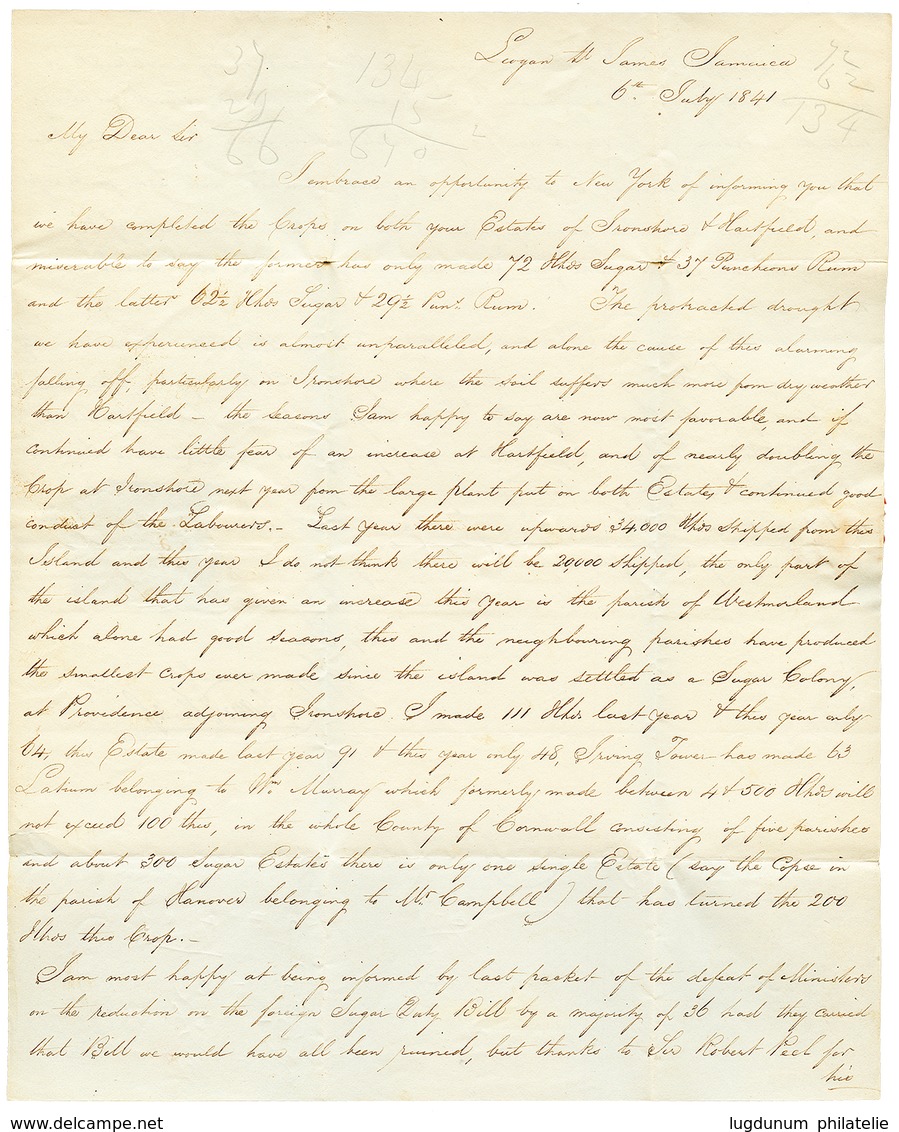 Leogan St James Jamaica
6th July 1841
37
29
66
134
15
670
2
72
62
134
My Dear Sir
I embrace an opportunity to New York of informing you that
we have completed the Crops on both your Estates of Ironshore & Hartfield, and
miserable to say the former has only made 72 Hhds Sugar & 37 Puncheons Rum
and the latter 62½ Hhds Sugar & 29½ Puns. Rum. The protracted drought
we have experienced is almost unparalleled, and alone the cause of this alarming
falling off particularly on Ironshore where the soil suffers much more from dry weather
than Hartfield – the seasons I am happy to say are now most favorable, and if
continued have little fear of an increase at Hartfield, and of nearly doubling the
Crop at Ironshore next year from the large plant put on both Estates, & continued good
conduct of the Labourers. – Last year there were upwards 34.000 Hhds shipped from this
Island and this year I do not think there will be 20,000 Shipped, the only part of
the island that has given an increase this year is the parish of Westmorland
which alone had good seasons, this and the neighbouring parishes have produced
the smallest crops ever made since the island was settled as a Sugar Colony,
at Providence adjoining Ironshore I made 111 Hhds last year & this year only
64, this Estate made last year 91 & this year only 48, Irving Tower has made 63
Latium belonging to Wm Murray which formerly made between 4 & 500 Hhds will
not exceed 100 this, in the whole County of Cornwall consisting of five parishes
and about 300 Sugar Estates there is only one single Estate (say the Copse in
the parish of Hanover belonging to Mr. Campbell) that has turned the 200
Hhds this Crop. –
I am most happy at being informed by last packet of the defeat of Ministers
on the reduction on the foreign Sugar Duty Bill by a majority of 36 had they carried
that Bill we would have all been ruined, but thanks to Sir Robert Peel for
his
www.delcampe.net
lugdunum philatelie